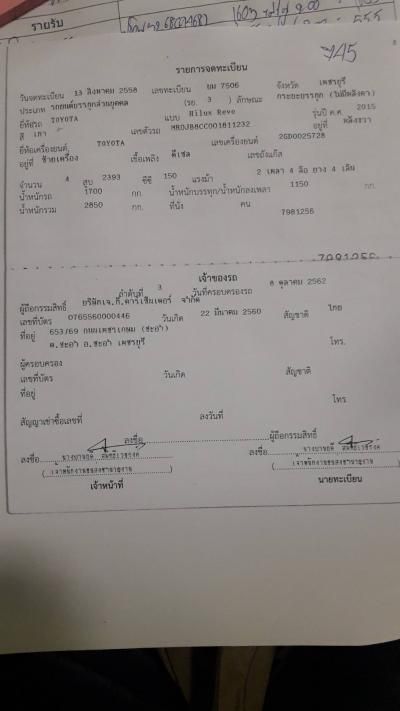 รายรับ
745
รายการจดทะเบียน
วันจดทะเบียน 13 สิงหาคม 2558 เลขทะเบียน ยม 7506 จังหวัด เพชรบุรี
ประเภท รถยนต์บรรทุกส่วนบุคคล (รย. 3 ) ลักษณะ กระบะบรรทุก (ไม่มีหลังคา)
ยี่ห้อรถ TOYOTA แบบ Hilux Revo รุ่นปี ค.ศ. 2015
สี เทา เลขตัวรถ MR0JB8CC001811232 อยู่ที่
ยี่ห้อเครื่องยนต์ TOYOTA เลขเครื่องยนต์ 2GD0025728
อยู่ที่ ซ้ายเครื่อง เชื้อเพลิง ดีเซล เลขถังแก๊ส
จำนวน 4 สูบ 2393 ซีซี 150 แรงม้า 2 เพลา 4 ล้อ ยาง 4 เส้น
น้ำหนักรถ 1700 กก. น้ำหนักบรรทุก/น้ำหนักลงเพลา 1150 กก.
น้ำหนักรวม 2850 กก. ที่นั่ง คน
7981256
เจ้าของรถ
ลำดับที่ 3 วันที่ครอบครองรถ 8 ตุลาคม 2562
ผู้ถือกรรมสิทธิ์ บริษัทเจ.ที.คาร์เซ็นเตอร์ จำกัด
เลขที่บัตร 0765560000446 วันเกิด 22 มีนาคม 2560 สัญชาติ ไทย
ที่อยู่ 653/69 ถนนเพชรเกษม (ชะอำ)
ต.ชะอำ อ.ชะอำ เพชรบุรี โทร.
ผู้ครอบครอง
เลขที่บัตร วันเกิด สัญชาติ
ที่อยู่
โทร
สัญญาเช่าซื้อเลขที่ ลงวันที่
ลงชื่อ ผู้ถือกรรมสิทธิ์
ลงชื่อ ลงชื่อ
(เจ้าพนักงานขนส่งชำนาญงาน) (เจ้าพนักงานขนส่งชำนาญงาน)
เจ้าหน้าที่ นายทะเบียน